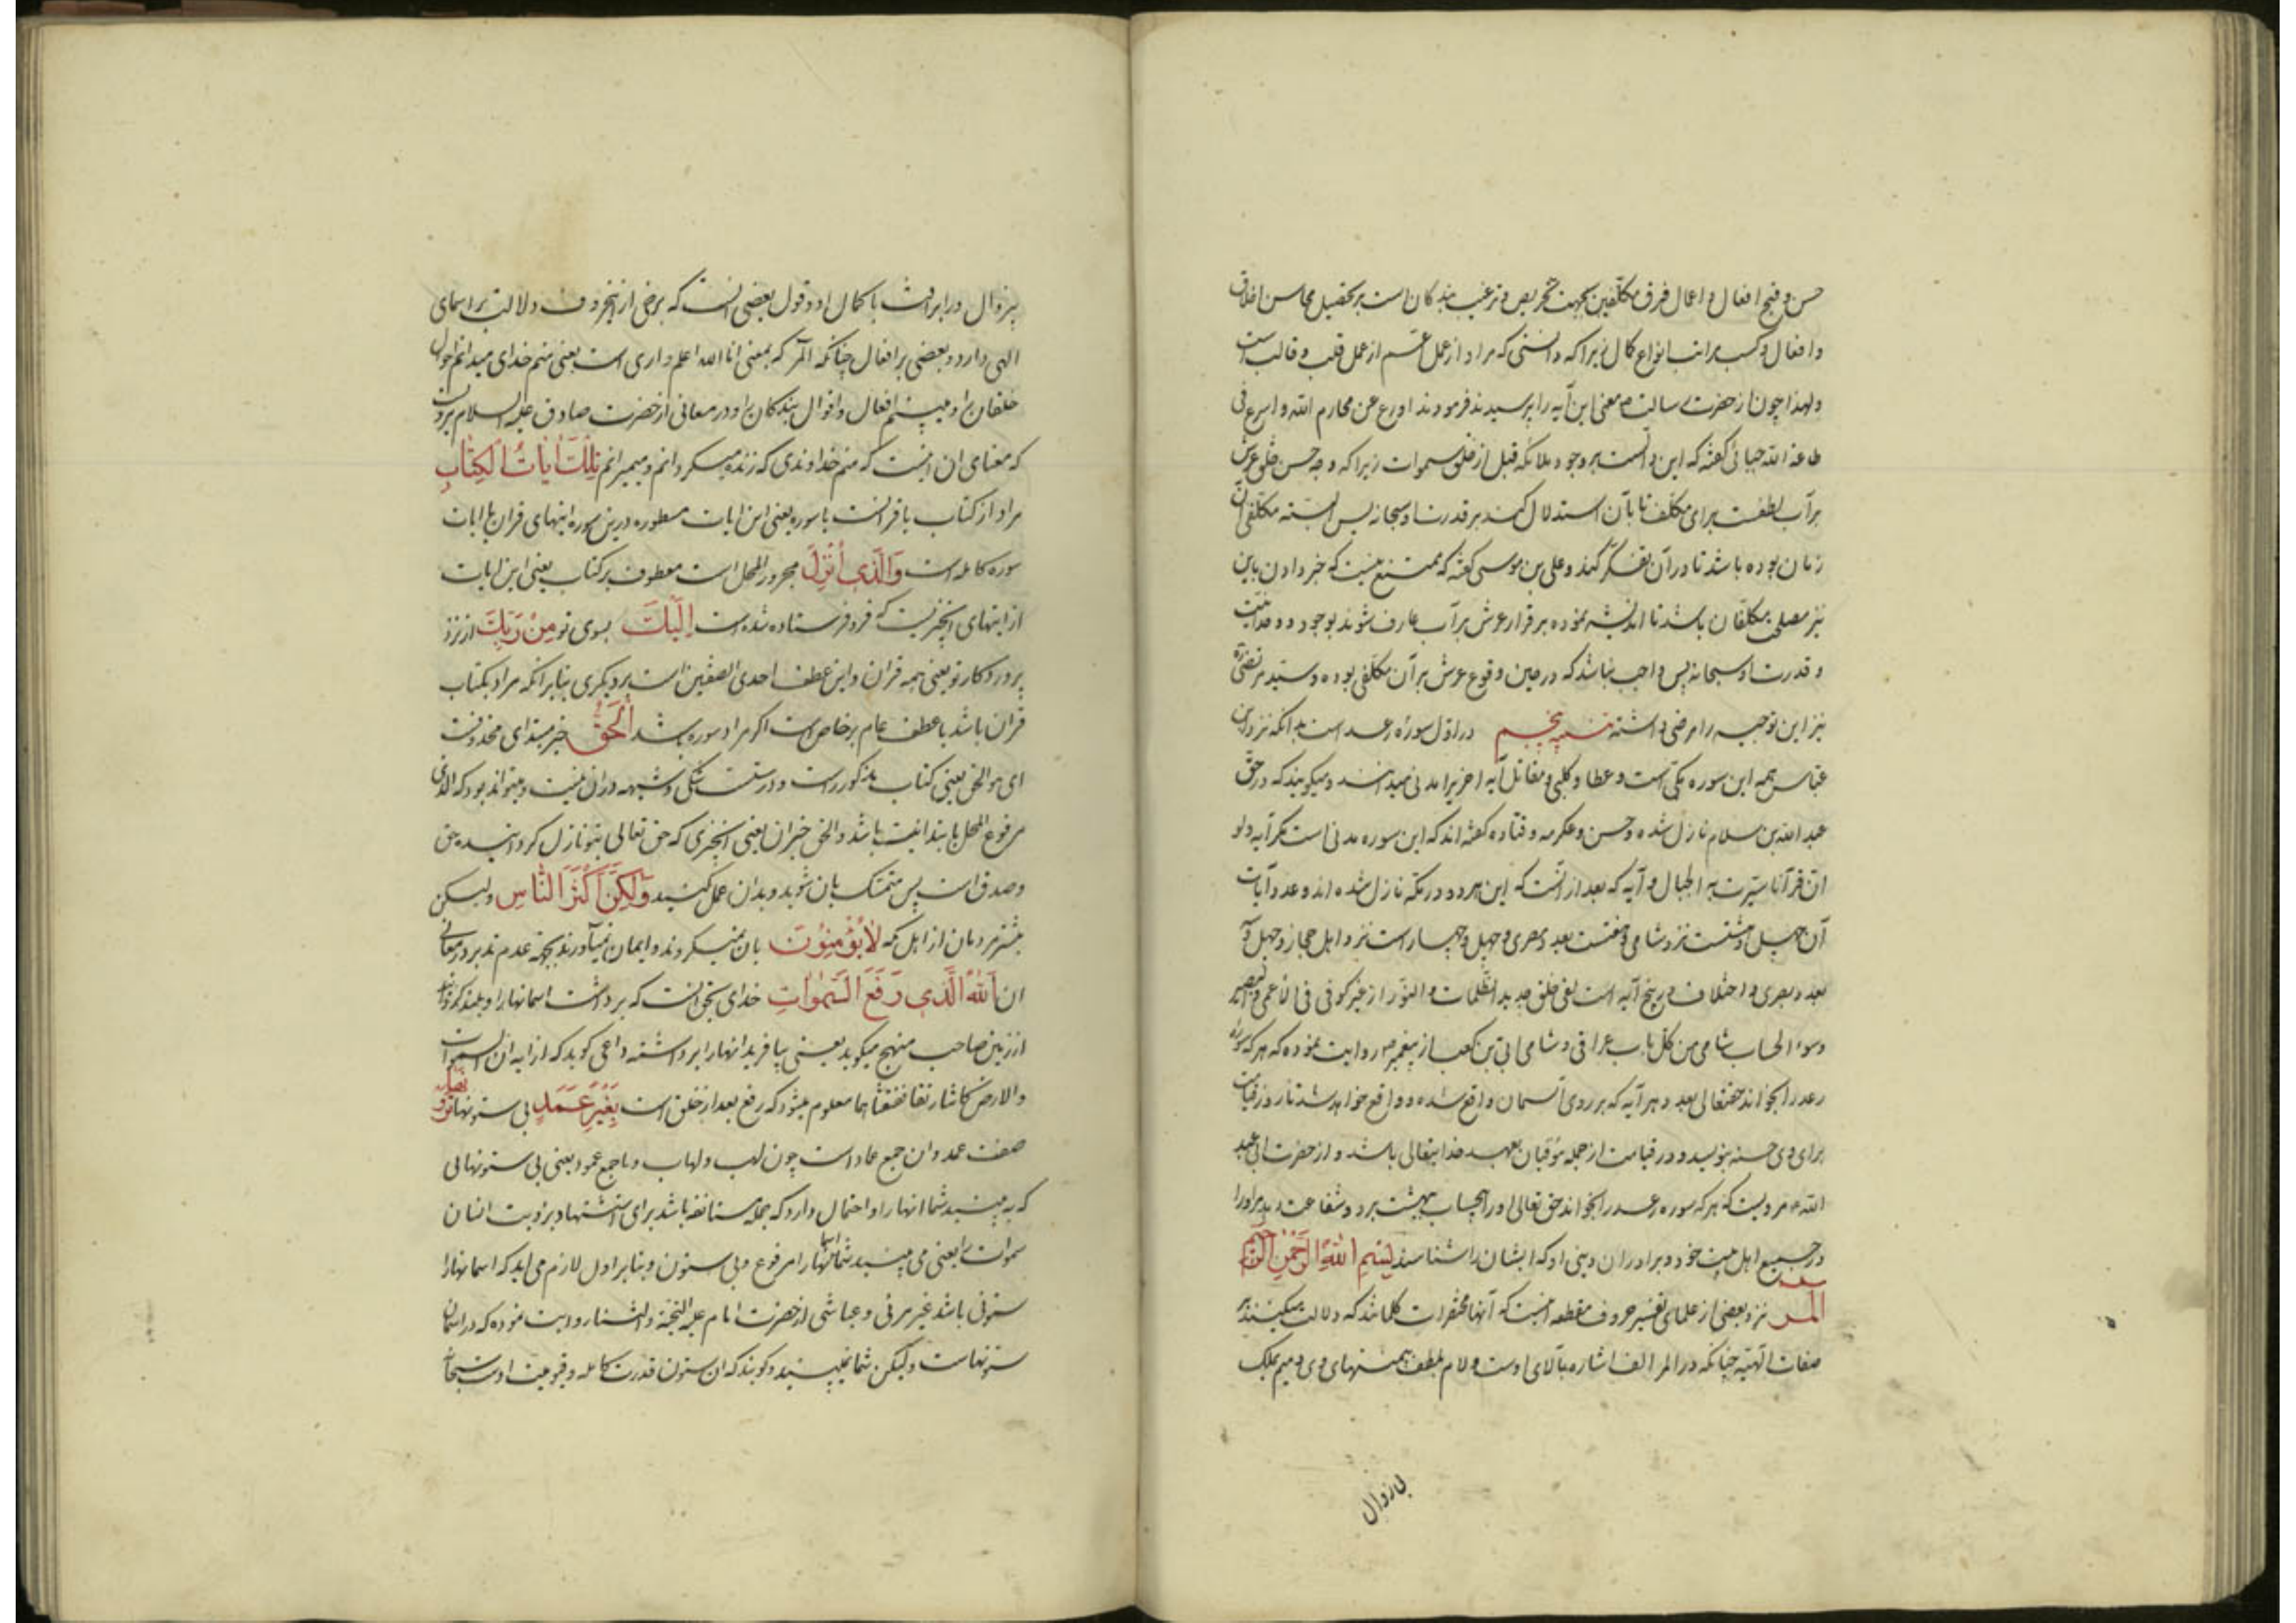 حسن و قبح افعال و اعمال فرق مکلفین بجهت تحریص و ترغیب بندکان است بر تحصیل محاسن اخلاق
و افعال و کسب مراتب انواع کمال زیرا که دانستی که مراد از عمل اعم است از عمل قلب و قالب است
و لهذا چون از حضرت رسالت ص معنی این آیه را پرسیدند فرمودند اورع عن محارم الله و اسرع فی
طاعة الله جبائی کفته که این دال است بر وجود ملائکه قبل از خلق سموات زیرا که وجه حسن خلق عرش
بر آب لطفست برای مکلف تا بآن استدلال کنند بر قدرت او سبحانه پس البته مکلفی در آن
زمان بوده باشد تا در آن تفکر کند و علی بن موسی کفته که ممتنع نیست که خبر دادن باین
نیز مصلحت مکلفان باشد تا اندیشه نموده بر قرار عرش بر آب عارف شوند بوجود و وحدانیت
و قدرت او سبحانه پس واجب نباشد که در حین وقوع عرش بر آن مکلفی بوده و سید مرتضی ره
نیز این توجیه را مرضی داشته در اول سوره رعد است بدانکه نزد ابن
عباس همه این سوره مکی است و عطا و کلبی و مقاتل آیه اخر را مدنی میدانند و میکویند که در حق
عبد الله بن سلام نازل شده و حسن و عکرمه و قتاده کفته اند که این سوره مدنی است مکر آیه و لو
ان قرآنا سیرت به الجبال و آیه که بعد از آنست که این هر دو در مکه نازل شده اند و عدد آیات
آن چهل و هشتست نزد شامی و هفتست بعدد بصری و چهل و چهار است نزد اهل حجاز و چهل و آ
بعدد بصری و اختلاف در پنج آیه است لفی خلق جدید الظلمات و النور از غیر کوفی فی الاعمی و البصیر
و سوء الحساب شامی من کل باب عراقی و شامی ابی بن کعب از پیغمبر ص روایت نموده که هر که سوره
رعد را بخواند حقتعالی بعدد هر آیه که بر روی آسمان واقع شده و واقع خواهد شد تا روز قیامت
برای وی حسنه بنویسد و در قیامت از جمله موقنان بعهد خدایتعالی باشد و از حضرت ابی عبد
الله ع مرویست که هر که سوره رعد را بخواند حق تعالی او را بیحساب ببهشت برد و شفاعت دهد او را
در جمیع اهل بیت خود و برادران دینی او که ایشان را شناسد بسم الله الرحمن الرحیم
المر نزد بعضی از علمای تفسیر حروف مقطعه اینست که آنها مختصرات کلماتند که دلالت میکنند بر
صفات الهیه چنانکه در المر الف اشاره بآلای اوست و لام بلطف بی منتهای وی و میم بملک
بی زوال
بیزوال و را برافت با کمال او و قول بعضی انست که برخی از اینحروف دلالت بر اسمای
الهی دارد و بعضی بر افعال چنانکه المر که بمعنی انا الله اعلم و اری است یعنی منم خدای میدانم احوال
خلقان را و میبینم افعال و اقوال بندکان را و در معانی از حضرت صادق علیه السلام مرویست
که معنای ان اینست که منم خداوندی که زنده میکردانم و میمیرانم تلك ایات الکتاب
مراد از کتاب یا قرآنست یا سوره یعنی این ایات مسطوره درین سوره ایتهای قران یا ایات
سوره کامله است و الذی انزل مجرور المحل است معطوف بر کتاب یعنی این ایات
از ایتهای انچیزیست که فرو فرستاده شده است الیك بسوی تو من ربك از نزد
پروردکار تو یعنی همه قران و این عطف احدی الصفتین است بر دیکری بنابرانکه مراد بکتاب
قران باشد یا عطف عام بر خاص است اکر مراد سوره باشد الحق خبر مبتدای محذوفست
ای هو الحق یعنی کتاب مذکور راست و درست است شکی و شبهه در ان نیست و میتواند بود که الذی
مرفوع المحل بابتدائیت باشد و الحق خبر ان یعنی انچیزی که حق تعالی بتو نازل کردانیده حق
و صدق است پس متمسک بان شوید و بدان عمل کنید و لکن اکثر الناس و لیکن
بیشتر مردمان از اهل مکه لا یؤمنون بان نمیکروند و ایمان نمیآورند بجهة عدم تدبر در معانی
ان الله الذی رفع السموات خدای بحق انست که برداشت اسمانها را و بلند کردانید
از زمین صاحب منهج میکوید یعنی بیافرید انها را برداشته داعی کوید که از آیه ان السموات
و الارض کانتا رتقا ففتقناهما معلوم میشود که رفع بعد از خلق است بغیر عمد بی ستونها ترونها
صفت عمد و ان جمع عماد است چون اهب و اهاب و یا جمع عمود یعنی بی ستونهائی
که به بینید شما انها را و احتمال دارد که جمله مستانفه باشد برای استشهاد برؤیت انسان
سموات را یعنی می بینید شما اسمانها را مرفوع و بی ستون و بنابر اول لازم می اید که اسمانها را
ستونی باشد غیر مرئی و عیاشی از حضرت امام علیه التحیة و الثنا روایت نموده که در اسمان
ستونهاست و لیکن شما نمیبینید و کویند که ان ستون قدرت کامله و قیومیت اوست سبحانه